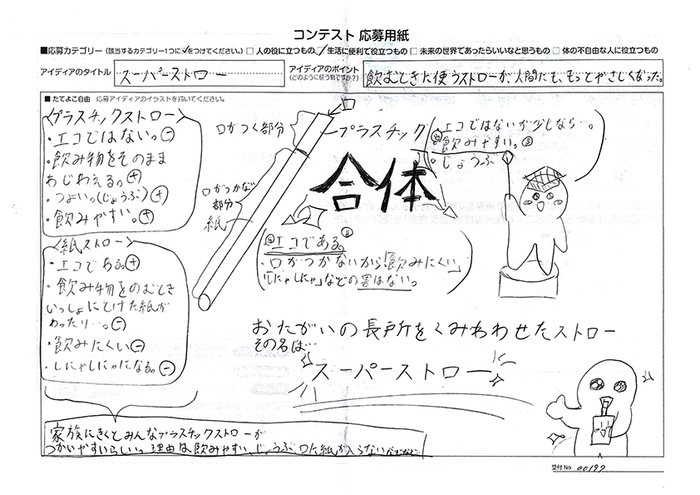 コンテスト 応募用紙
■応募カテゴリー（該当するカテゴリー1つに✓をつけてください。）□ 人の役に立つもの ✓ 生活に便利で役立つもの □ 未来の世界であったらいいなと思うもの □ 体の不自由な人に役立つもの
アイディアのタイトル
スーパーストロー
アイディアのポイント
飲むときに使うストローが、人間にも、もっとやさしくなった。
〈プラスチックストロー〉
・エコではない。⊖
・飲み物をそのまま
あじわえる。⊕
・つよい。(じょうぶ)⊕
・飲みやすい。⊕
〈紙ストロー〉
・エコである⊕
・飲み物をのむとき
いっしょにとけた紙が
・飲みにくい⊖
・しにゃしにゃになる。⊖
口がつく部分
プラスチック
・エコではないが少しなら…。
飲みやすい。
・じょうぶ
口がつかない
部分
紙
合体
エコである。
・口がつかないから「飲みにくい」
「しにゃしにゃ」などの
はない。
おたがいの長所をくみあわせたストロー
その名は…
スーパーストロー
家族にきくとみんなプラスチックストローが
つかいやすいらしい。理由は、飲みやすい、じょうぶ、
受付No. 00197